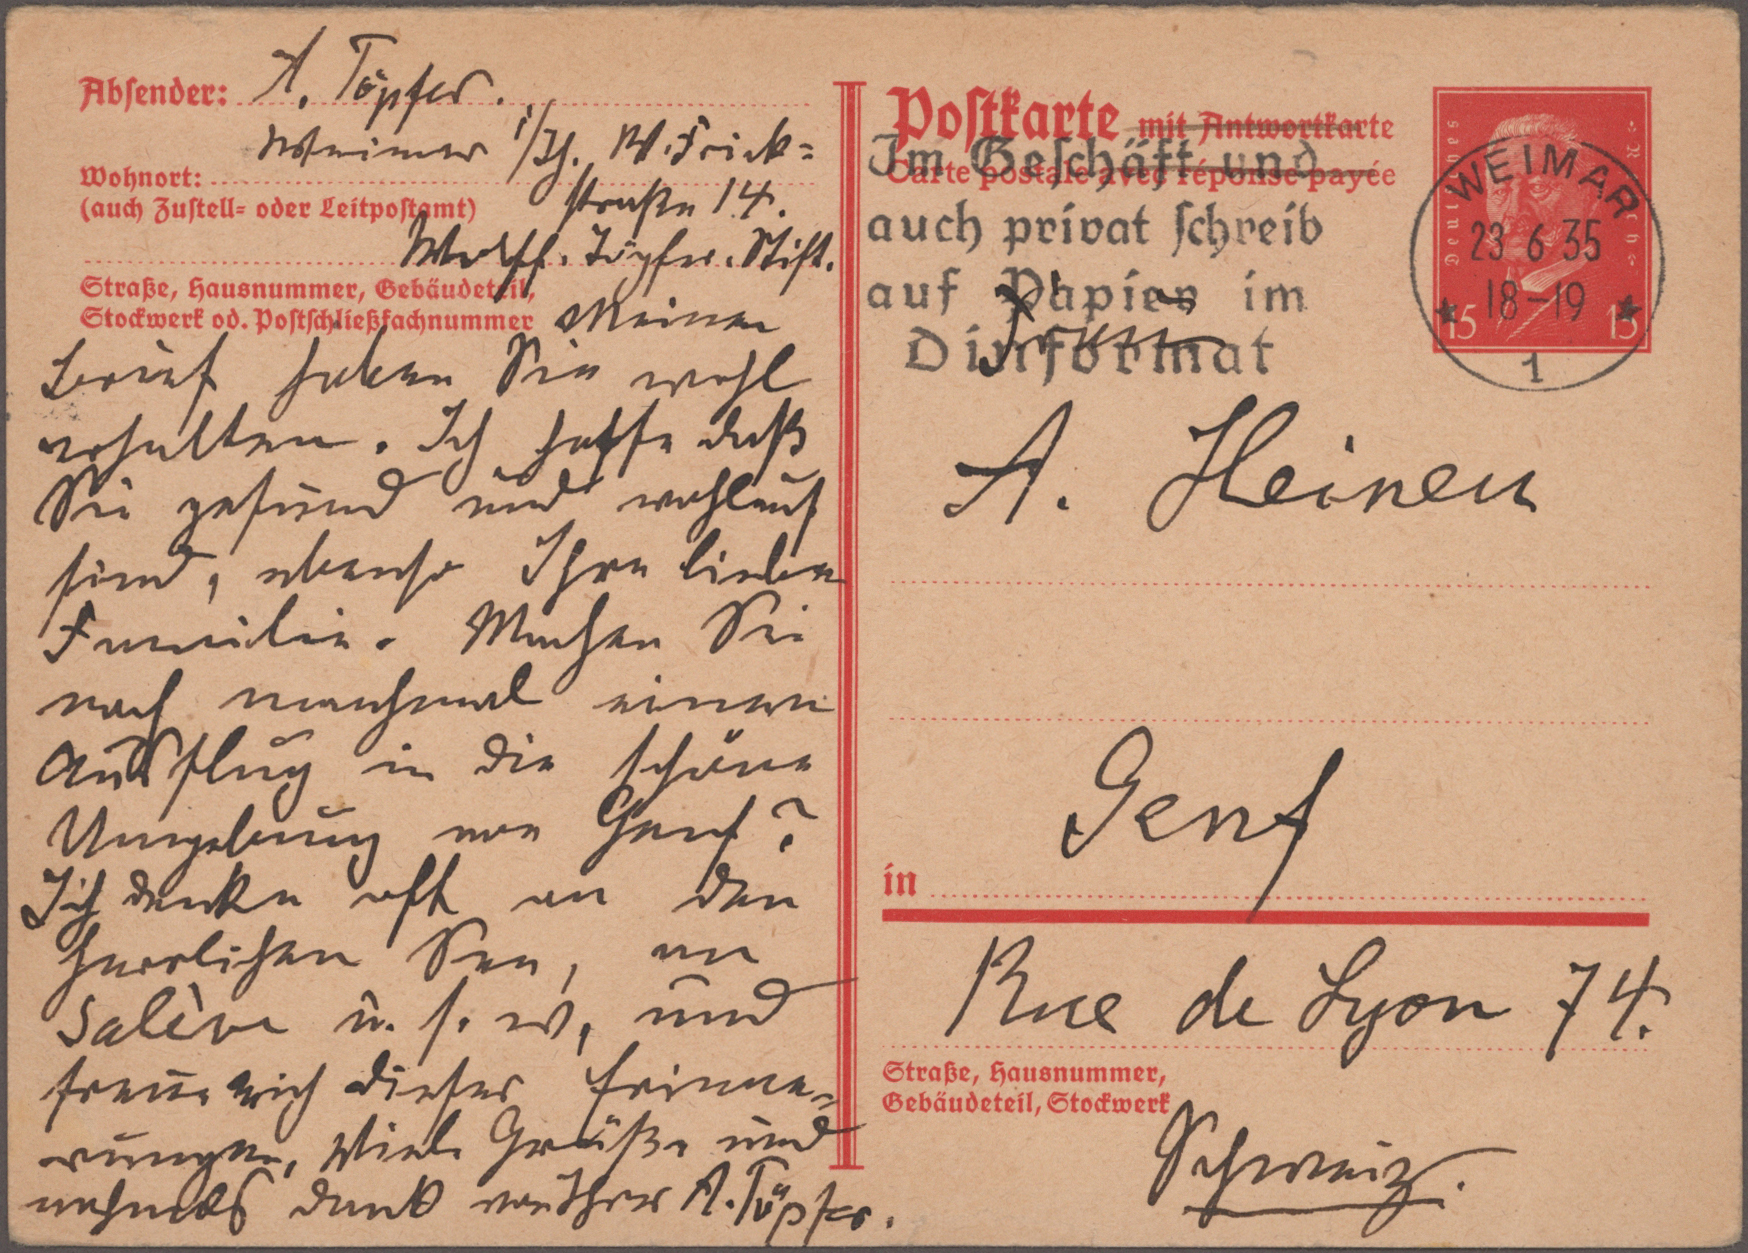 Absender: A. Töpfer.
Weimar i/Th. W. Frick=
Wohnort:
(auch Zustell= oder Leitpostamt)
straße 14.
Wolff. Töpfer. Stift.
Straße, Hausnummer, Gebäudeteil,
Stockwerk od. Postschließfachnummer
Meinen
Brief haben Sie wohl
erhalten. Ich hoffe daß
Sie gesund und wohlauf
sind, ebenso Ihre liebe
Familie. Machen Sie
noch manchmal einen
Ausflug in die schöne
Umgebung von Genf?
Ich denke oft an den
herrlichen See, an
Salève u. s. w, und
freue mich dieser Erinne=
rungen, Viele Grüße und
nochmals Dank von Ihrer A. Töpfer.
Postkarte mit Antwortkarte
Carte postale avec réponse payée
Im Geschäft und
auch privat schreib
auf Papier im
Dinformat
Deutsches Reich
15 15
WEIMAR
23 6 35
18-19
1
Frau
A. Heinen
Genf
in
Rue de Lyon 74.
Straße, Hausnummer,
Gebäudeteil, Stockwerk
Schweiz.